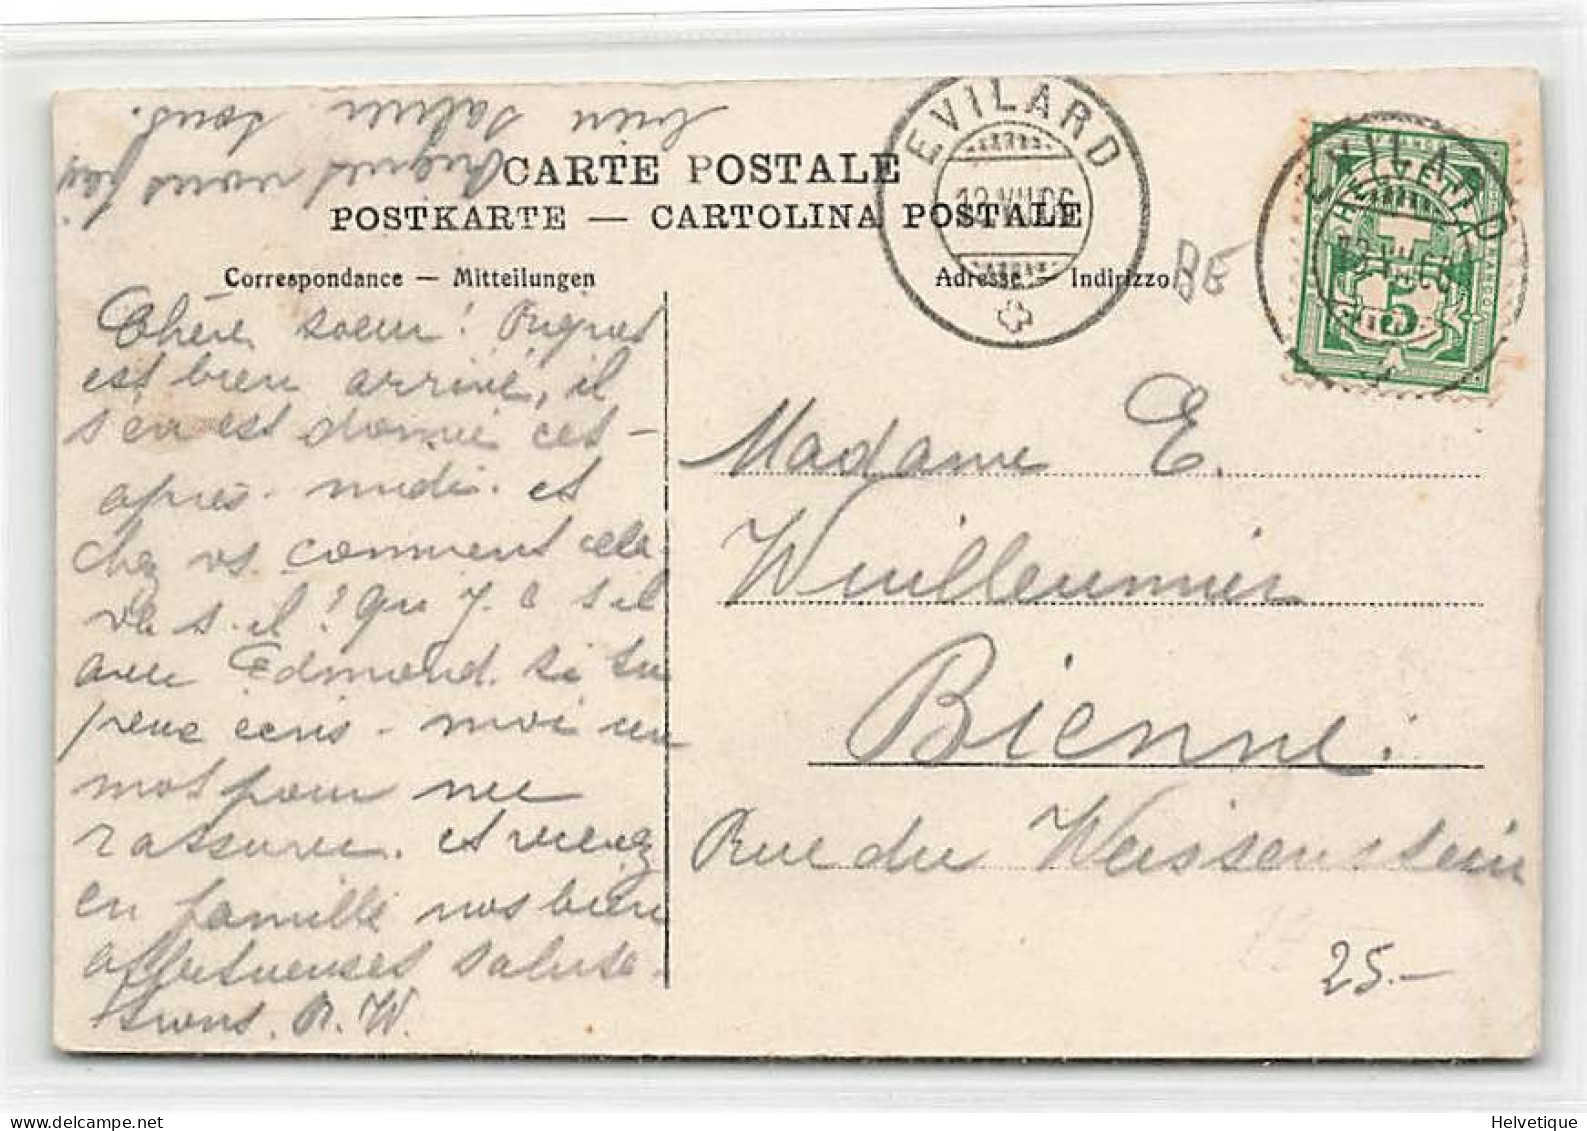 bien saluer tous.
vous fais
CARTE POSTALE
POSTKARTE — CARTOLINA POSTALE
Correspondance — Mitteilungen
Adresse — Indirizzo
EVILARD
12.VII.06
EVILARD
HELVETIA
FRANCO
5
BE
Chère soeur!
est bien arrivé, il
s'en est donné cet-
après-midi. et
chez vs comment cela
va s-il! qu'y a s il
avec Edmond. si tu
peux écris-moi un
mot pour me
rassurer. et recevez
en famille nos bien
affectueuses saluta-
tions. R. W.
Madame E.
Wuilleumier
Bienne.
Rue du Weissenstein
25.-
Helvetique